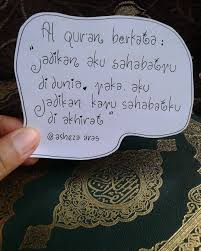 Al quran berkata :
"jadikan aku sahabatmu
di dunia, maka aku
jadikan kamu sahabatku
di akhirat"
@asheza aras